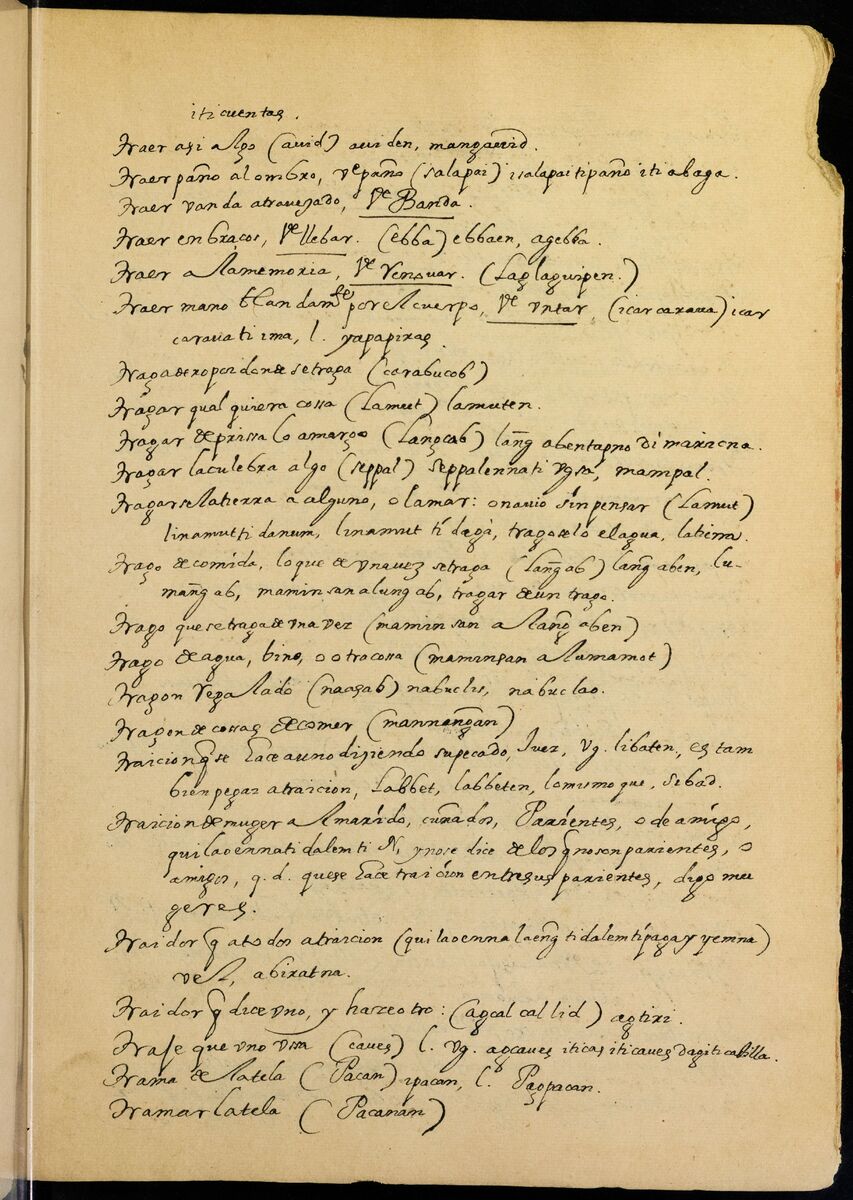 iti cuentas.
traer asi algo (auid) auiden, mangauid.
traer paño al ombro, ve paño (salapai) isalapai ti paño iti abaga.
traer vanda atravezado, Ve Banda.
traer en braços, Ve llebar. (ebba) ebbaen, agebba.
traer a la memoria, Ve (Laglaguipen.)
traer mano blandamte por el cuerpo, Ve vntar, (icarcaraua) icar
carauati ima, l. yapapiras.
traga de ropo do nde se traga (carabucob)
tragar qual quiera cossa (Lamut) lamuten.
tragar de prissa lo amargo (Langcab) lang abentapno di mariena.
tragar la culebra algo (seppal) seppalennati vgsa, mampal.
tragarse la tierra a alguno, o la mar: o navio sin pensar (Lamut)
linamut ti danum, linamut ti daga, tragoselo el agua, la tierra.
trago de comida, lo que de vna vez se traga (langab) lang aben, lu-
mang ab, maminsan a lung ab, tragar de un trago.
trago que se traga de vna vez (maminsan a lang aben)
trago de agua, bino, o otra cossa (maminsan a lumamot)
tragon regalado (naasab) nabuclis, nabuclao.
tragon de cossas de comer (mannangan)
traicion q se hace a uno diziendo su pecado, Juez, vg. libaten, es tam
bien pegar a traicion, Labbet, labbeten, lo mismo que, sebad.
traicion de muger al marido, cuñados, Parientes, o de amigo,
quilaoennati dalem ti N, y no se dice de los q no son parientes, o
amigos, q. d. que se hace traicion entre sus parientes, digo mu
geres.
traidor q a todos a traicion (quilaoenna laeng ti dalem ti pagayyemna)
vel, abiratna.
traidor q dice vno, y haze otro: (agcalcallid) agtiri.
traje que vno vssa (caues) l. vg. agcaues iti cas iti caues dagiti castilla.
trama de la tela (Pacan) ipacan, l. Pagpacan.
tramar la tela (Pacanan)